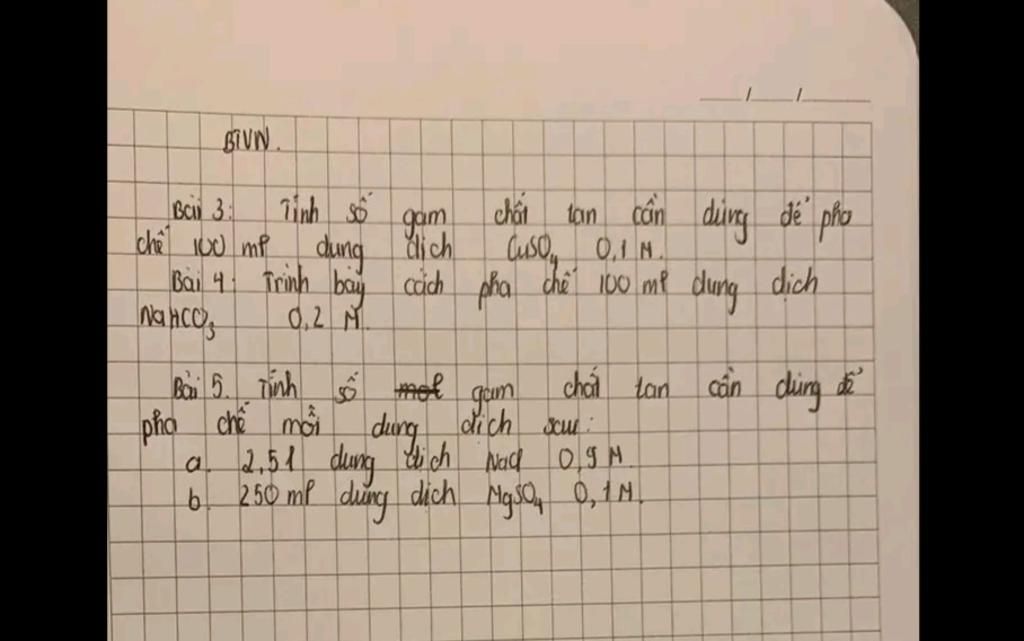 BTVN.
Bài 3: Tính số gam chất tan cần dùng để pha
chế 100 ml dung dịch CuSO₄ 0,1 M.
Bài 4: Trình bày cách pha chế 100 ml dung dịch
NaHCO₃ 0,2 M.
Bài 5. Tính số mol gam chất tan cần dùng để
pha chế mỗi dung dịch sau:
a. 2,5l dung dịch NaCl 0,9 M.
b. 250 ml dung dịch MgSO₄ 0,1 M.